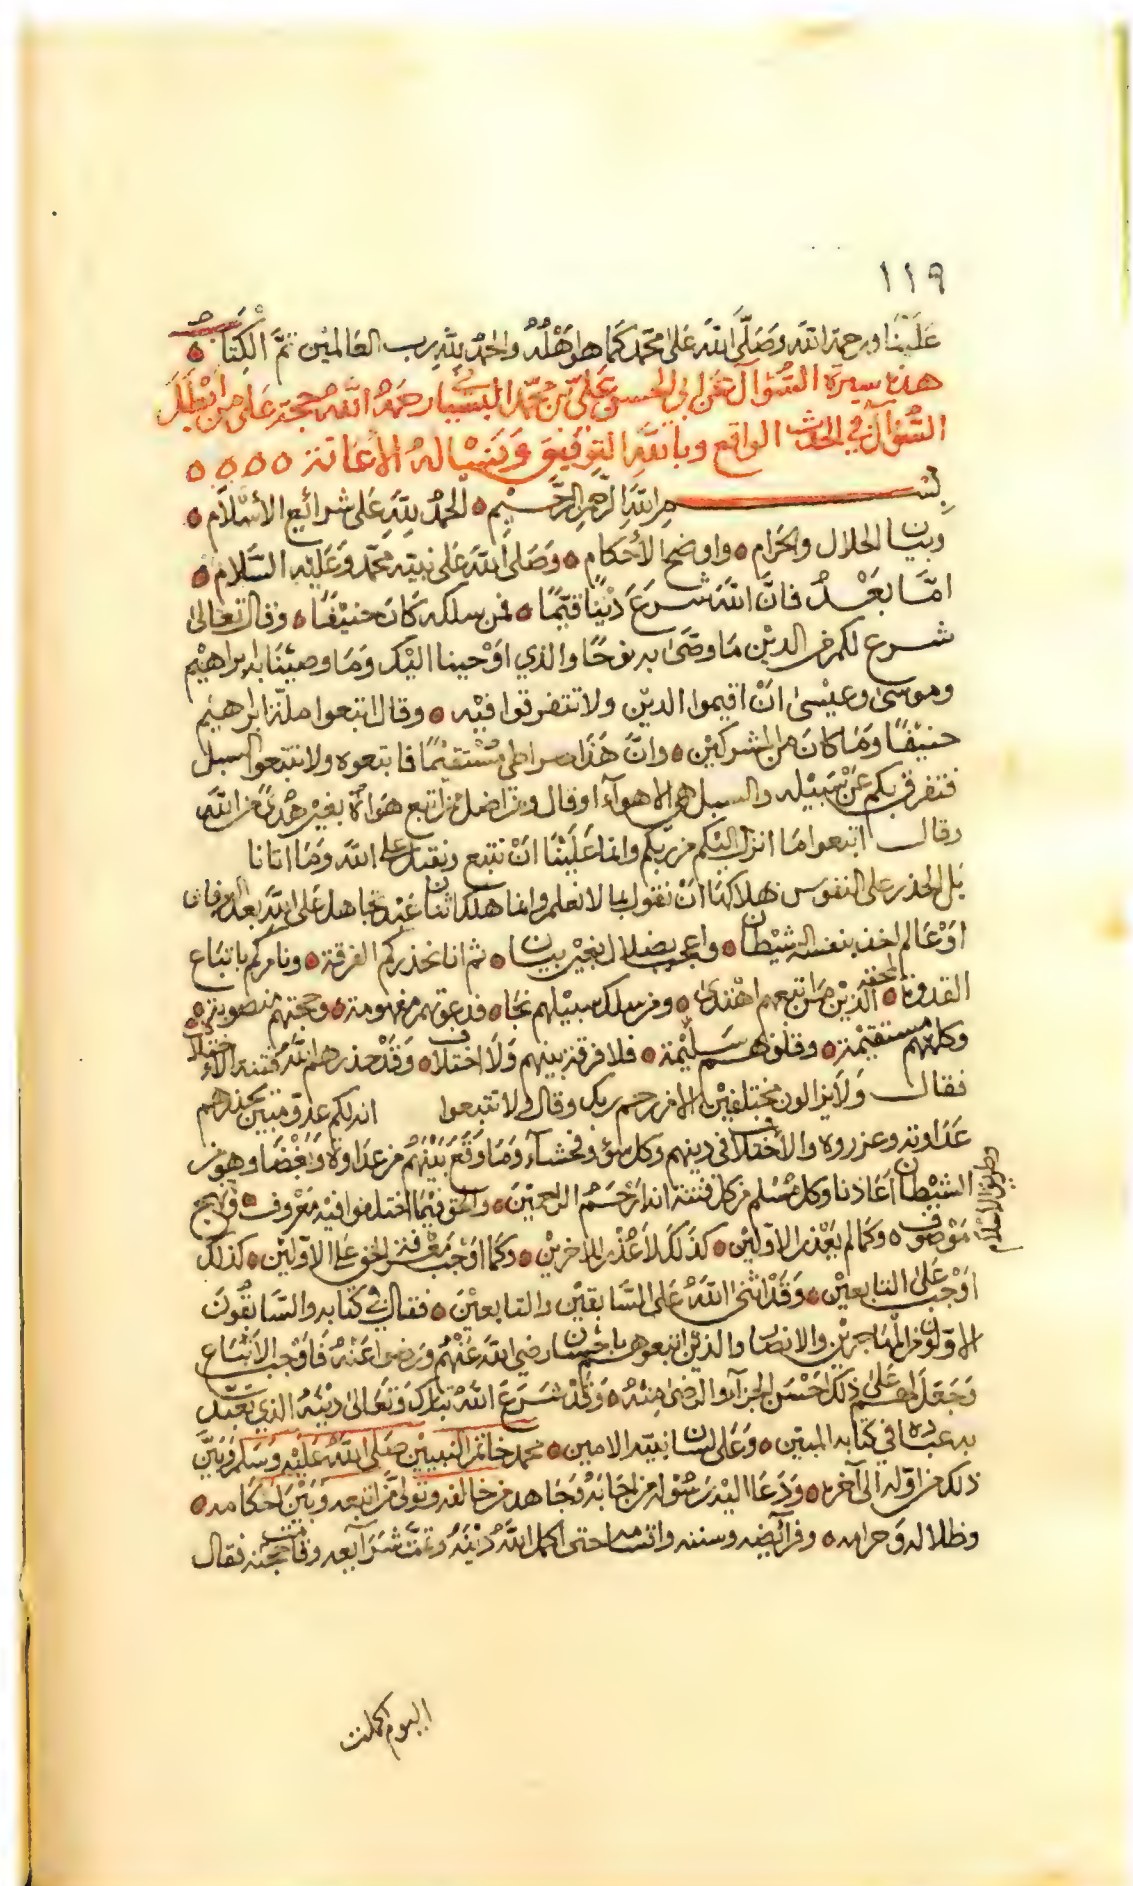 ١١٩
عَلَيْنَا ورحمة الله وَصَلَّى اللهُ عَلى محمّد كَمَا هو اَهْلُهُ والحمدُ لِلّهِ رب العَالمِيْن تمَّ الْكِتَاب
هذه سيرة السُّؤال عَن ابي الحسن عَليّ بن محمّد البسْياني رحمَهُ اللهُ حُجة عَلى من اَبْطَلَ
السُّؤالَ في الحدث الواقع وباللهِ التوفيق وَنَسْالهُ الاعَانة
بِسْمِ اللهِ الرَّحْمنِ الرَّحِيْمِ الحمدُ لِلهِ عَلى شرائع الأسْلام
وبيان الحلال والحرَام واوضح الأحكام وَصَلى اللهُ عَلى نبيّه محمّد وَعَليْه السَّلام
امَّا بَعْدُ فانَّ اللهَ شرعَ دْيناً قيّمًا فمن سلكه كَانَ حنيْفًا وقال تعَالى
شرع لكم من الديْن مَا وصَى به نوحًا والذي اوْحينا اليْك وَمَا وصيْنَا به ابراهيْم
وموسى وعيْسى انْ اقيموا الديْن ولا تتفرقوا فيْه وقال اتبعوا ملّة ابراهيْم
حنيْفًا وَمَا كانَ من المشركيْن وانّ هَذَا صراطي مُسْتقيْمًا فاتبعوه ولا تتبعوا السبل
فتفرق بكم عَنْ سَبيْله والسبل هي الاهوآء وقال ومن اضل ممن اتبع هَوَاهُ بغيْر هُدىً من اللهِ
وقال اتبعوا مَا انزل اليْكم من ربكم وانما عَلَيْنَا انْ نتبع على اللهِ وَمَا اتانا
بَل الحذر على النفوس هلاكها انْ نقول بما لا نعلم وانما هلك اثنان على الله بعد
اوْ عَالم بنفسه شيْطان بضلال بغيْر بيان ثم انا نحذركم الفرقة ونامركم باتبَاع
القدوة المحقة الذيْن من اتبعهم اهْتدى ومن سلك سبيْلهم نجَا فدعوتهم مفهومة وحجتهم منصوبة
وكلمتهم مستقيْمة وقلوبهم سَليْمة فلا فرقة بيْنهم وَلَا اختلاف وَقَدْ حذرهم اللهُ فتنة الاختلاف
فقال وَلَا يزالون مختلفيْن الا من رحم ربك وقال ولا تتبعوا انه لكم عدو مبيْن يحذرهم
عَدَاوته وغروره والأختلاف في دينهم وكل سُوْء وفحشآء وَمَا وَقَعَ بَيْنَهُم من عَدَاوة وَبَغْضَا وهو من
الشيْطان اَعَاذنا وكل مُسْلم من كل فتنة انه ارْحَمُ الراحمِيْنَ والحق فيْمَا اختلفوا فيْه مَعْروف
وطريق الاسْلام
مَوْصُوْف وكَمَا لم يعْذر الاوليْن كذَلكَ لا عُذْر للآخريْن وكَمَا اوْجَبَ مَعْرفة الحق عَلى الاوليْن كذلك
اوْجَبَ على التابعيْن وَقَدْ اثنى اللهُ عَلى السَّابقيْن والتابعيْنَ فقال في كتابه والسَّابقُونَ
الاوّلون من المهَاجريْن والانصار والذيْن اتبعوهم باحْسان رضي اللهُ عَنْهُم ورضوا عَنْهُ فَاَوْجَب الاتبَاع
وَجَعَلَ لهم عَلى ذلكَ احْسَن الجزآء والرضى منْهُ وَقَدْ شَرعَ اللهُ تبارك وَتعَالى ديْنَهُ الذي تعَبّدَ
به عبَاده في كتابه المبيْن وَعَلى لسَان نبيّه الامين محمد خاتم النبييْن صَلى اللهُ عَليْه وَسَلم وَبَيّن
ذلك من اوله الى آخره وَدَعَا اليْه رَسُوْله من اجَابهُ وَجَاهد من خالفه وتولى من اتبعه وَبيْنَ احكامه
وحلاله وَحرامه وفرآئضه وسننه واقسامه حتى اكمل اللهُ ديْنَهُ وتمت شَرآيعه وقامت حجته فقال
اليوم اكملت